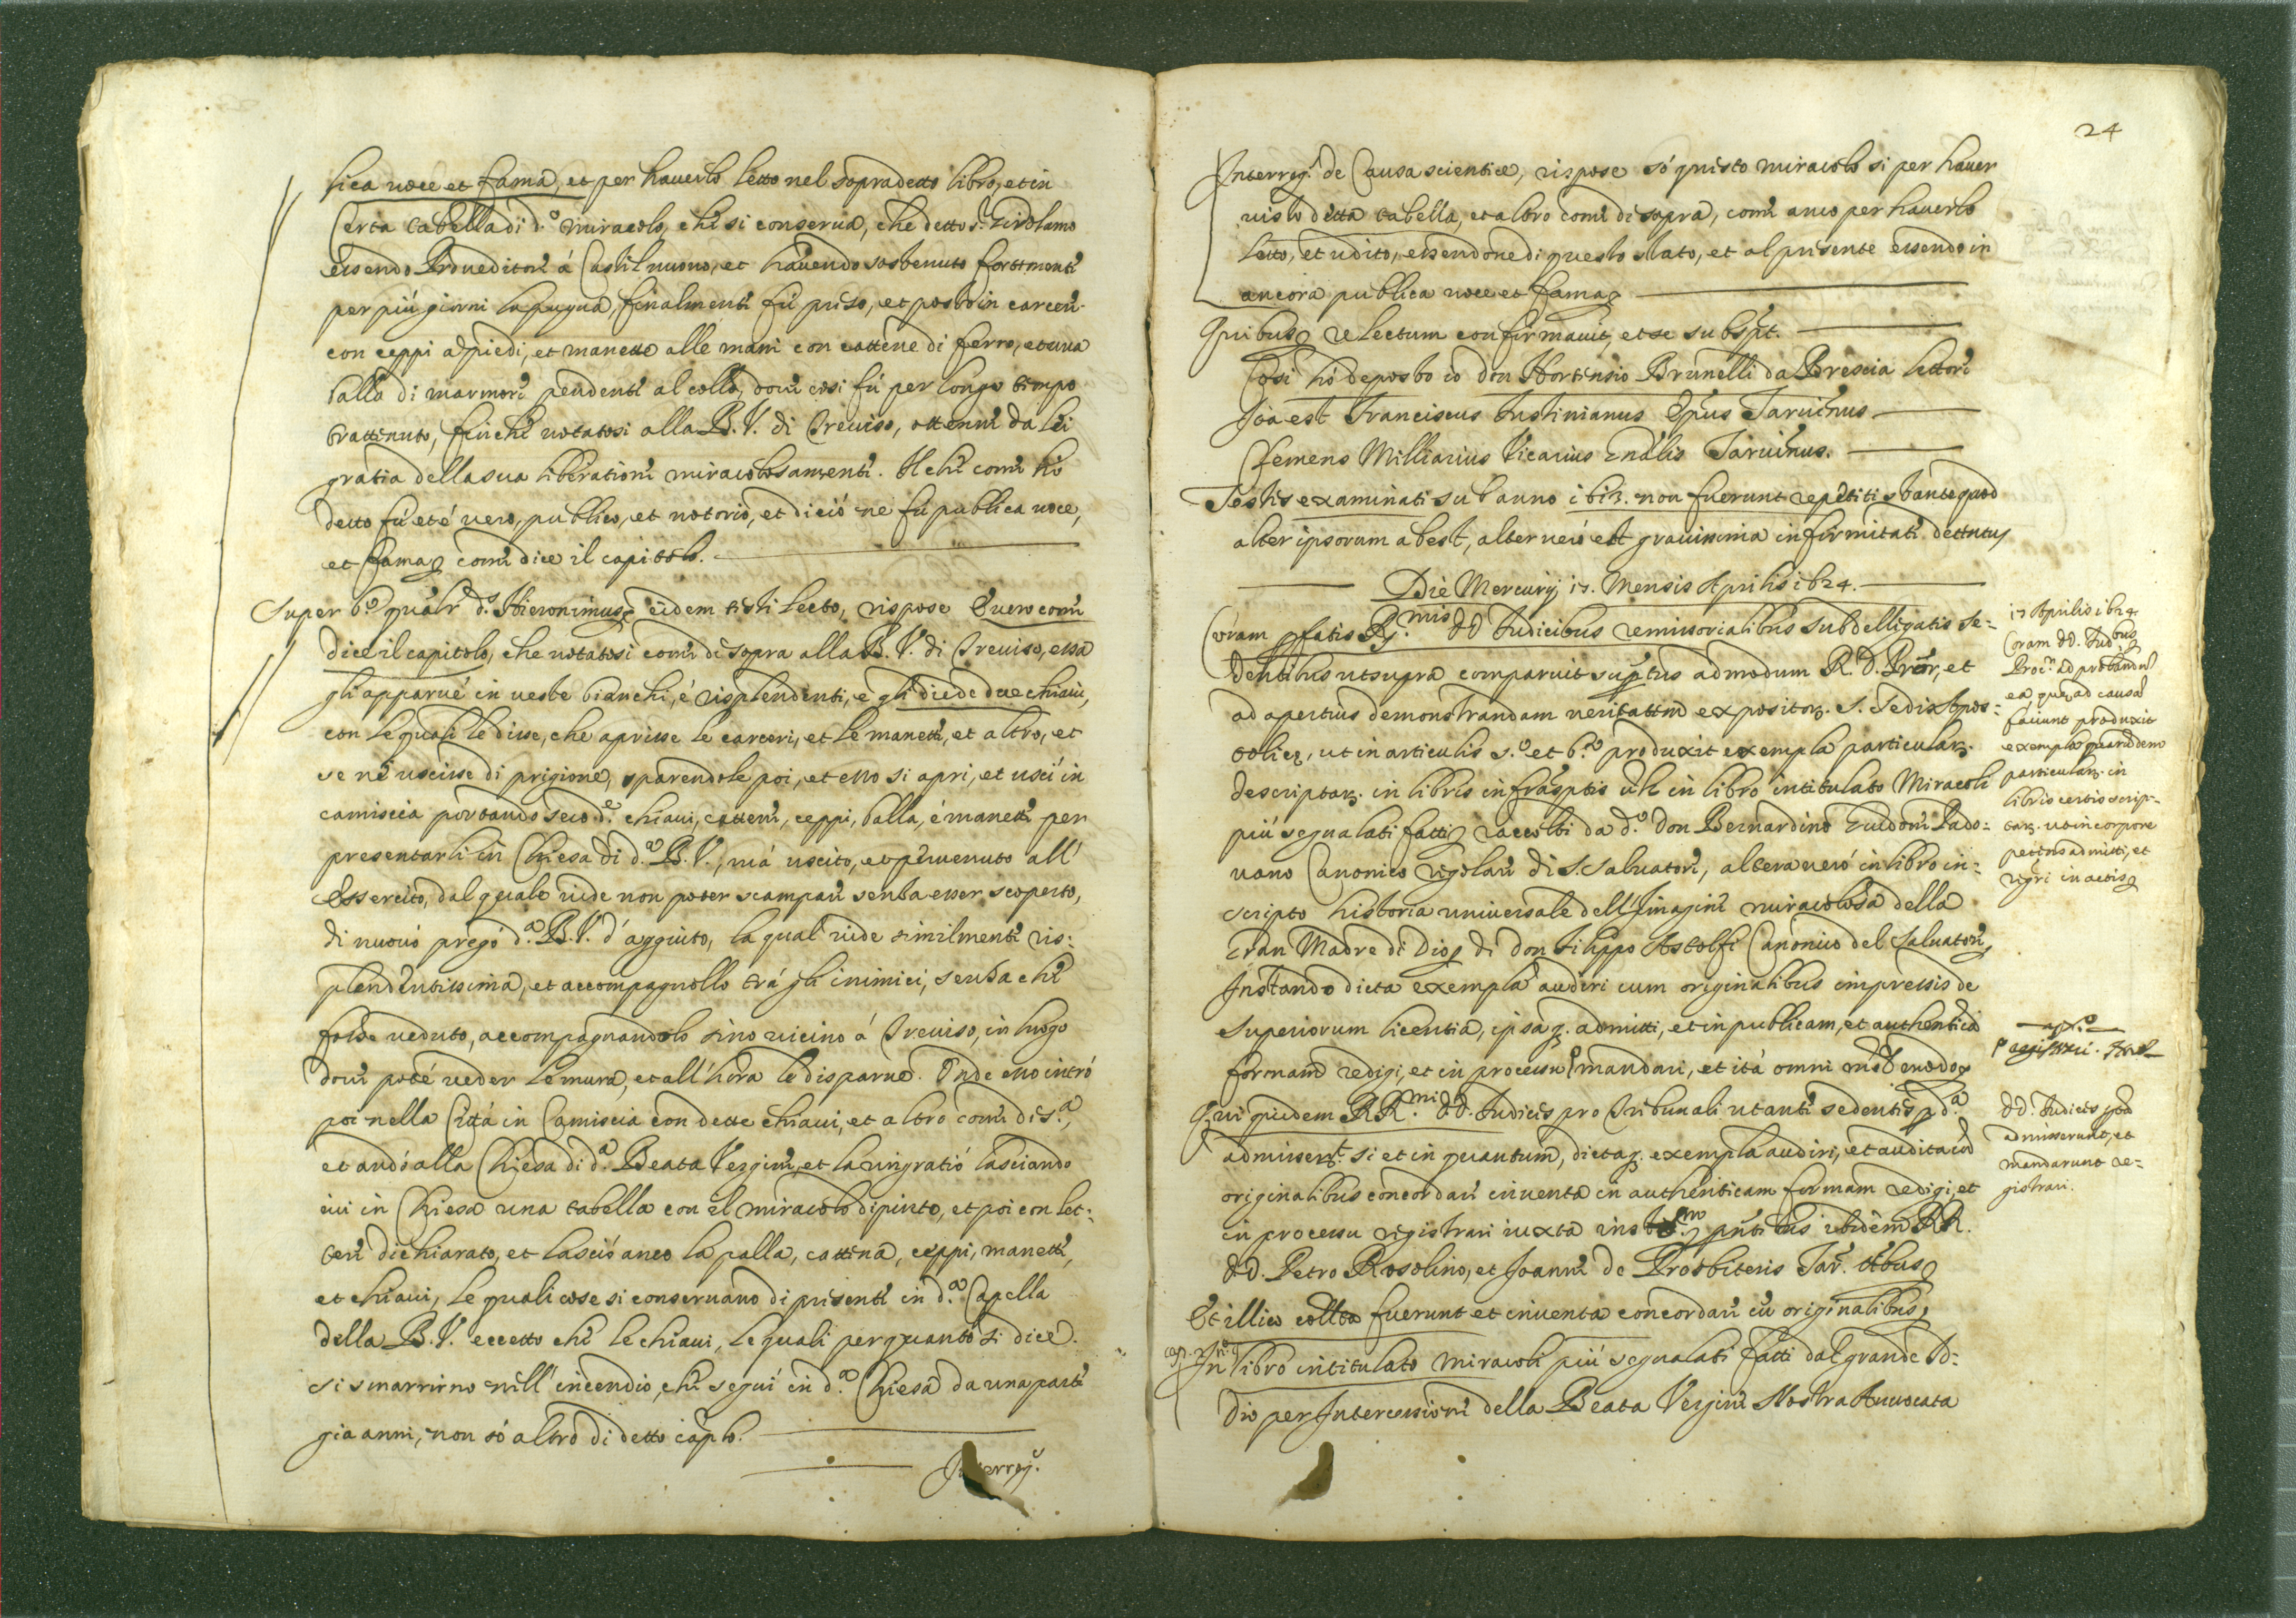 lica uoce et fama, et per hauerlo letto nel sopradetto libro, et in
Certa tabella di d.º miracolo, che si conserua, che detto s.r Girolamo
essendo Proueditore á Castil nuouo, et hauendo sostenuto fortemente
per più giorni la pugna, finalmente fù preso, et posto in carcere
con ceppi a piedi, et manette alle mani con cattene di ferro, et una
balla di marmore pendente al collo, doue così fù per longo tempo
trattenuto, finche uotatosi alla B. V. di Treuiso, ottenne da lei
gratia della sua liberatione miracolosamente. Il che come hò
detto fù et é uero, publico, et notorio, et di ció ne fù publica uoce,
et fama come dice il capitolo.
Super 6.º d.s Hieronimus eidem testi lecto, rispose É uero come
dice il capitolo, che uotatosi come di sopra alla B. V. di Treuiso, essa
gli apparué in ueste bianche, é risplendente, e gli diede due chiaui,
con le quali le disse, che aprisse le carceri, et le manette, et altro, et
se né uscisse di prigione, sparendole poi, et esso si aprì, et uscì in
camiscia portando seco d.e chiaui, cattene, ceppi, balla, é manette per
presentarli in Chiesa di d.a B. V., má uscito, et peruenuto all'
Essercito, dal quale uide non poter scampare senza esser scoperto,
di nuouo pregó d.a B. V. d'aggiuto, la qual uide similmente ris:
plendentissima, et accompagnollo trá gli inimici, senza che
fosse ueduto, accompagnandolo sino uicino á Treuiso, in luogo
doue poté ueder le mura, et all'hora le disparue. Onde esso intró
poi nella Città in Camiscia con dette chiaui, et altro come di s.a,
et andó alla Chiesa di d.a Beata Vergine, et la ringratió lasciando
iui in Chiesa una tabella con il miracolo dipinto, et poi con let:
tere dichiarato, et lasció anco la palla, cattena, ceppi, manette,
et chiaui, le quali cose si conseruano di presente in d.a Capella
della B. V. eccetto che le chiaui, le quali per quanto si dice
si smarrirno nell'incendio, che seguì in d.a Chiesa da una parte
gia anni, non só altro di detto caplo.
Interrog.s
24
Interrog.s de Causa scientiæ, rispose só questo miracolo si per hauer
uisto detta tabella, et altro come di sopra, come anco per hauerlo
letto, et udito, essendone di questo stato, et al presente essendo in
ancora publica uoce et fama
Quibus relectum confirmauit, et se subspt.
Così hó deposto io don Hortensio Brunelli da Brescia lettore
Ioa est Franciscus Iustinianus Epus Taruinus
Clemens Milliarius Vicarius Gnalis Taruinus.
Testis examinati sub anno 1613. non fuerunt repetiti stante quod
alter ipsorum abest, alter ueró est grauissima infirmitate dettentus
Die Mercurij 17. Mensis Aprilis 1624.
Coram pfatis R.mis DD Iudicibus remissorialibus subdelligatis se:
dentibus ut supra comparuit suptus admodum R. D. Pror, et
ad apertius demonstrandam ueritatem expositor. S. Sedi Apos:
tolicæ, ut in articulis 5.º et 6.º produxit exempla particular.
descriptar. in libris infrasptis uz in libro intitulato Miracoli
più segnalati fatti raccolti da d.º don Bernardino Guidoni Pado:
uano Canonico regolare di S. Saluatore, altera ueró in libro in:
scripto historia uniuersale dell'Imagine miracolosa della
Gran Madre di Dio di don Filippo Astolfi Canonico del Saluatore,
Instando dicta exempla audiri cum originalibus impressis de
superiorum licentia, ipsaq. admitti, et in publicam, et authenticã
formam redigi, et in processu mandari, et ità omni modo
Qui quidem RR.mi DD. Iudices pro Tribunali ut ante sedentes p d.a
admiser.t si et in quantum, dictaq. exempla audiri, et audita cũ
originalibus concordare inuenta in authenticam formam redigi, et
in processu registrari iuxta pntibus ibidem RR.
DD. Petro Rosolino, et Joanne de Prosbiteris Tar. ttbus
Et illico fuerunt et inuenta concordare cũ originalibus,
In libro intitulato miracoli più segnalati fatti dal grande Id:
dio per Intercessione della Beata Vergine Nostra Auuocata
17 Aprilis 1624
Coram DD. Iudbus
Proc.r ad probandũ
ea quæ ad causã
faciunt produxit
exempla quarũdem
particular. in
libris certis scrip:
tar. ut in corpore
petens admitti, et
regri in actis
DD. Iudices pd
admisserunt, et
mandarunt re:
gistrari.